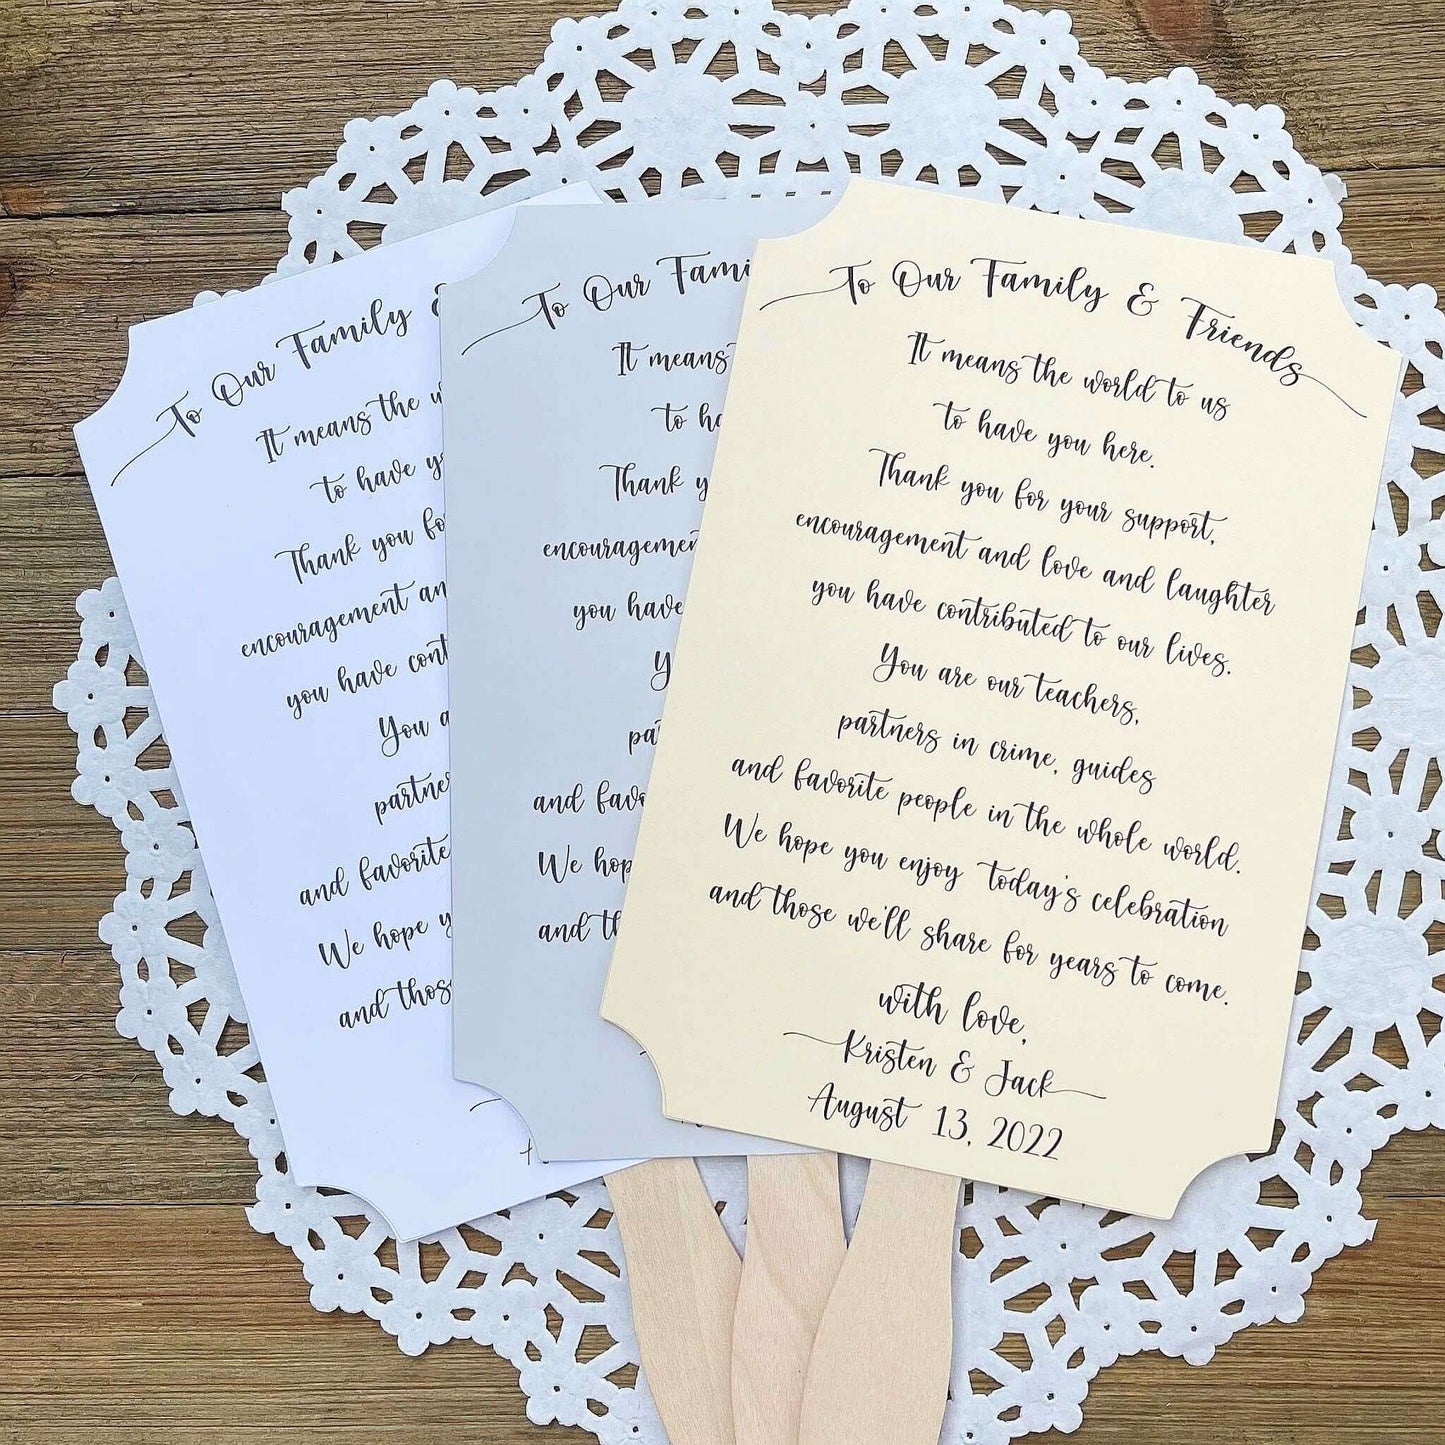 To Our Family &
It means the
to have
Thank you for
encouragement
you have
You
and favorite
We hope
and
To Our
It means
to
Thank
you have
and
We
and
To Our Family & Friends
It means the world to us
to have you here.
Thank you for your support,
encouragement and love and laughter
you have contributed to our lives.
You are our teachers,
partners in crime, guides
and favorite people in the whole world.
We hope you enjoy today's celebration
and those we'll share for years to come.
with love,
Kristen & Jack
August 13, 2022